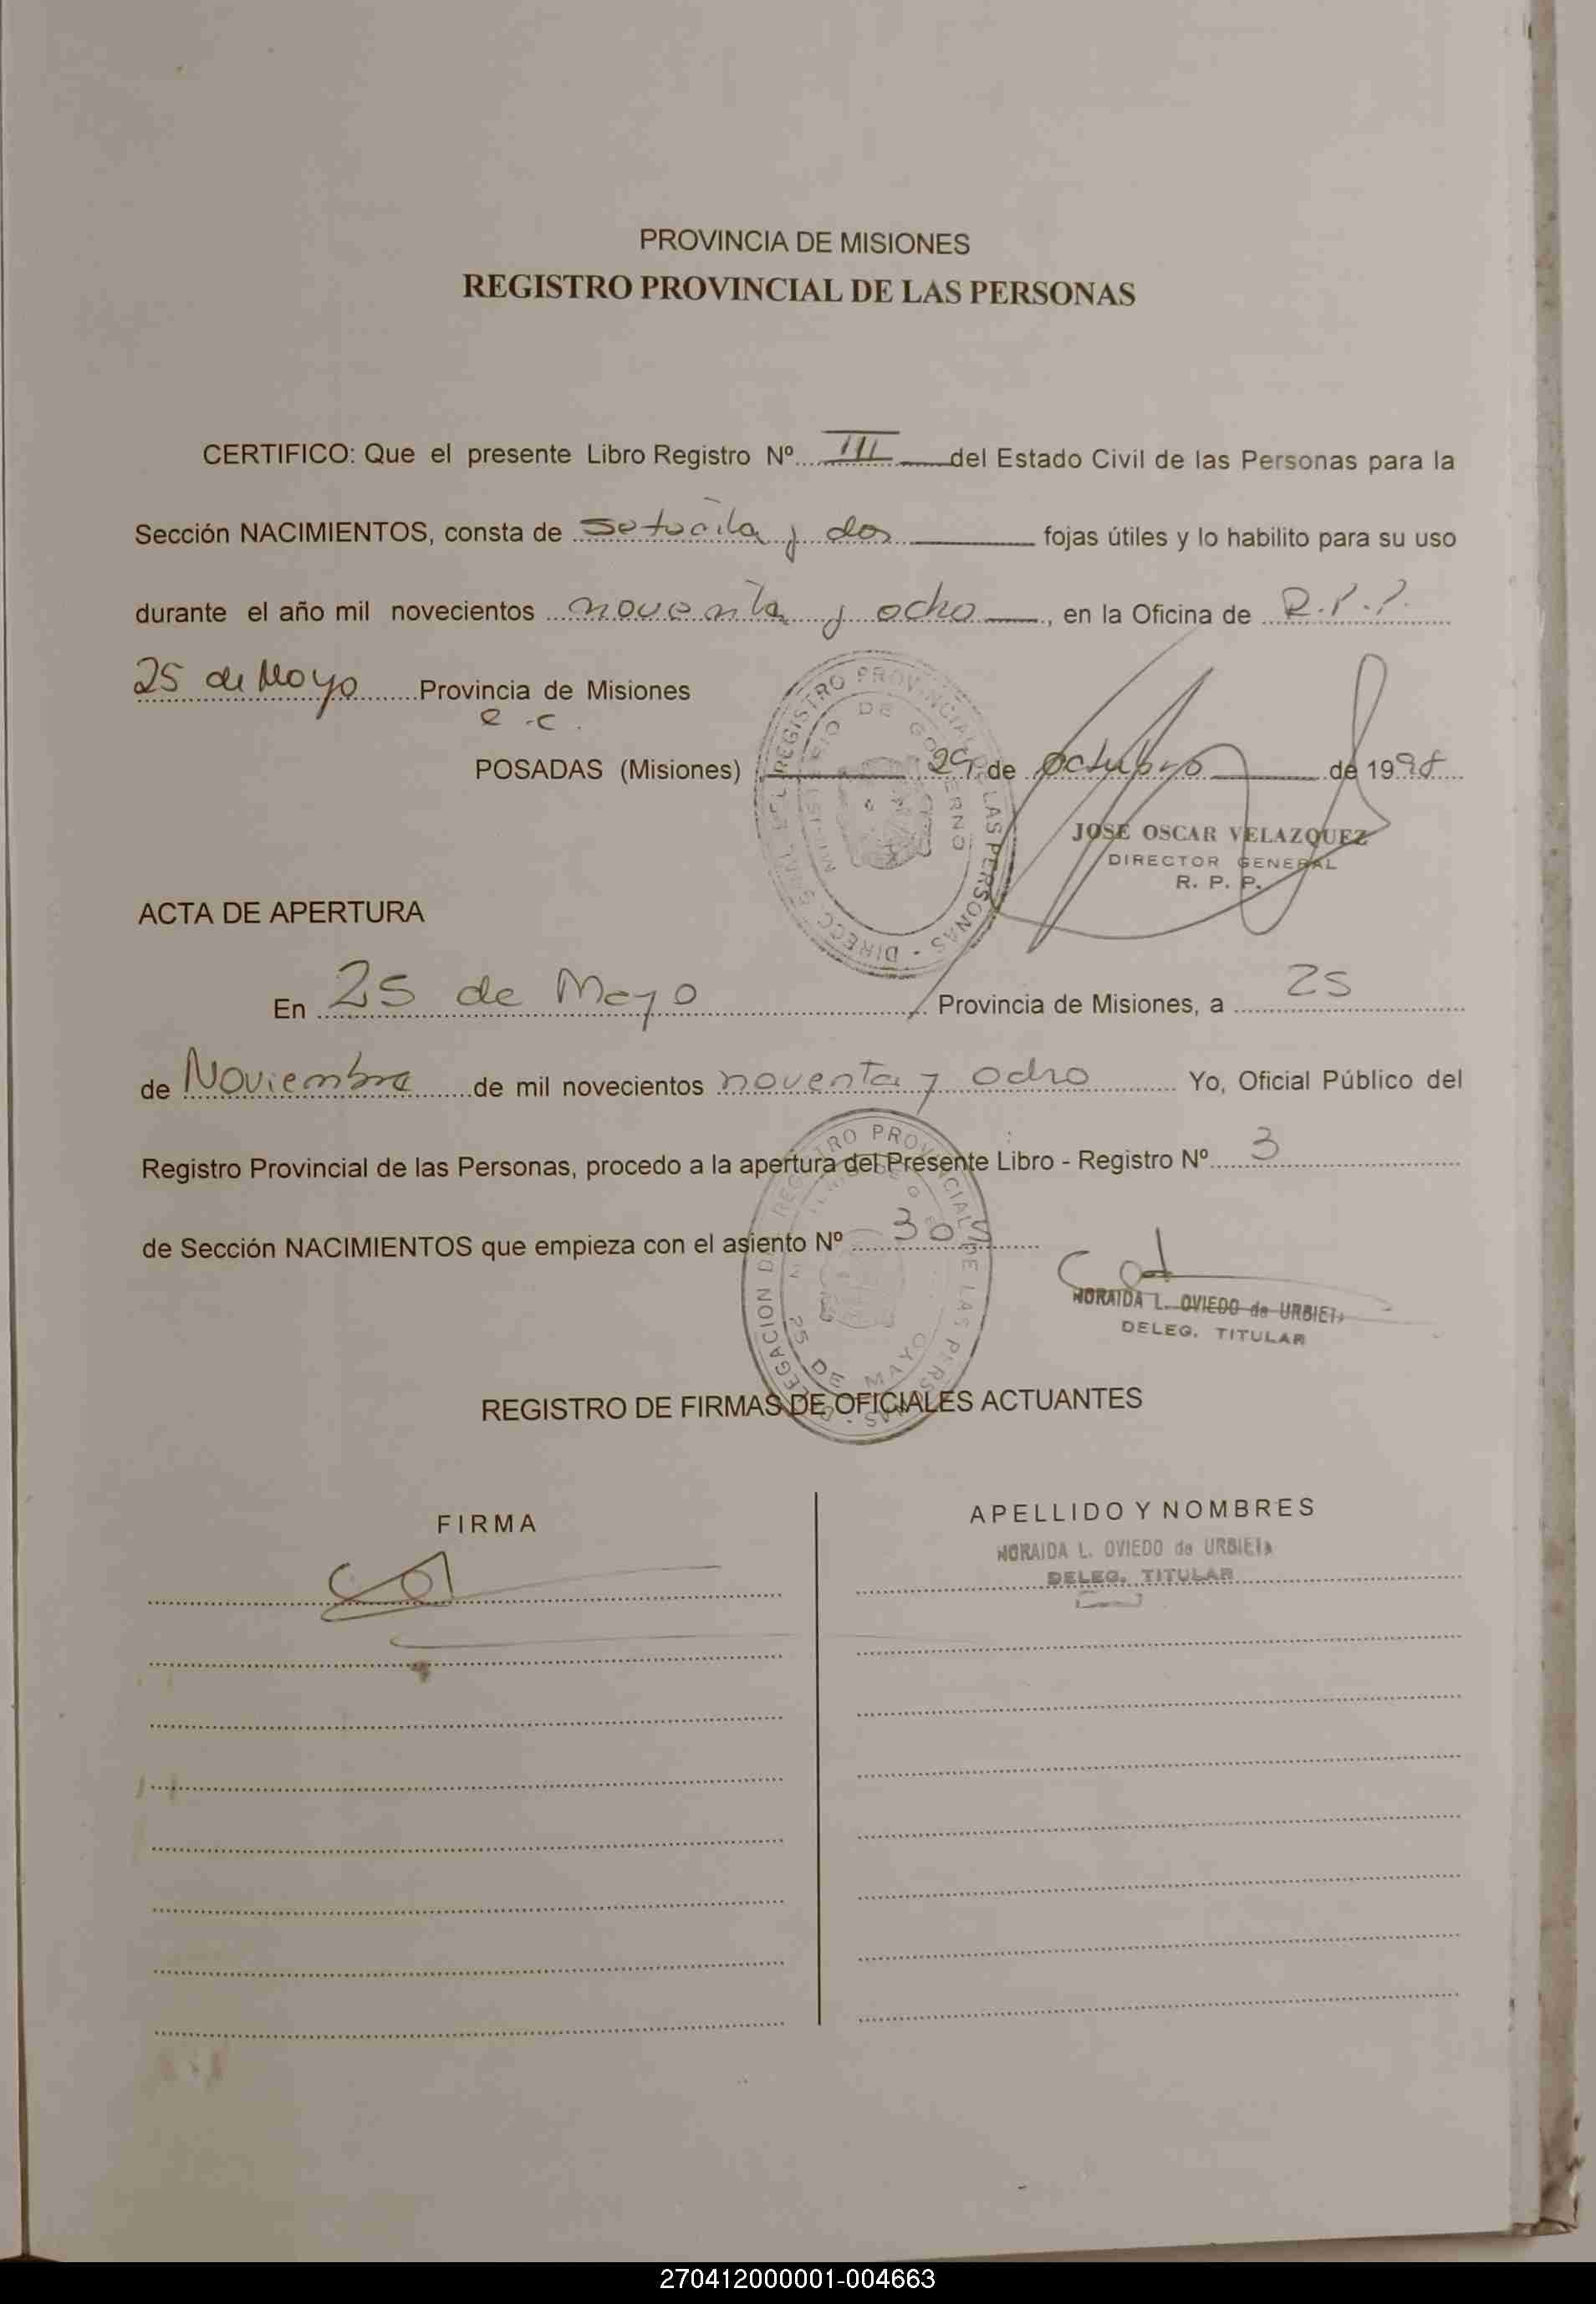 PROVINCIA DE MISIONES
REGISTRO PROVINCIAL DE LAS PERSONAS
CERTIFICO: Que el presente Libro Registro Nº III del Estado Civil de las Personas para la
Sección NACIMIENTOS, consta de setenta y dos fojas útiles y lo habilito para su uso
durante el año mil novecientos noventa y ocho, en la Oficina de R.P.P.
25 de Mayo Provincia de Misiones
e.c.
POSADAS (Misiones) 29 de octubre de 1998
JOSE OSCAR VELAZQUEZ
DIRECTOR GENERAL
R. P. P.
DIRECC GRAL DEL REGISTRO PROVINCIAL DE LAS PERSONAS
MINISTERIO DE GOBIERNO
ACTA DE APERTURA
En 25 de Mayo Provincia de Misiones, a 25
de Noviembre de mil novecientos noventa y ocho Yo, Oficial Público del
Registro Provincial de las Personas, procedo a la apertura del Presente Libro - Registro Nº 3
de Sección NACIMIENTOS que empieza con el asiento Nº 305
NORAIDA L. OVIEDO de URBIETA
DELEG. TITULAR
DELEGACION DEL REGISTRO PROVINCIAL DE LAS PERSONAS
25 DE MAYO
REGISTRO DE FIRMAS DE OFICIALES ACTUANTES
FIRMA
APELLIDO Y NOMBRES
NORAIDA L. OVIEDO de URBIETA
DELEG. TITULAR
270412000001-004663